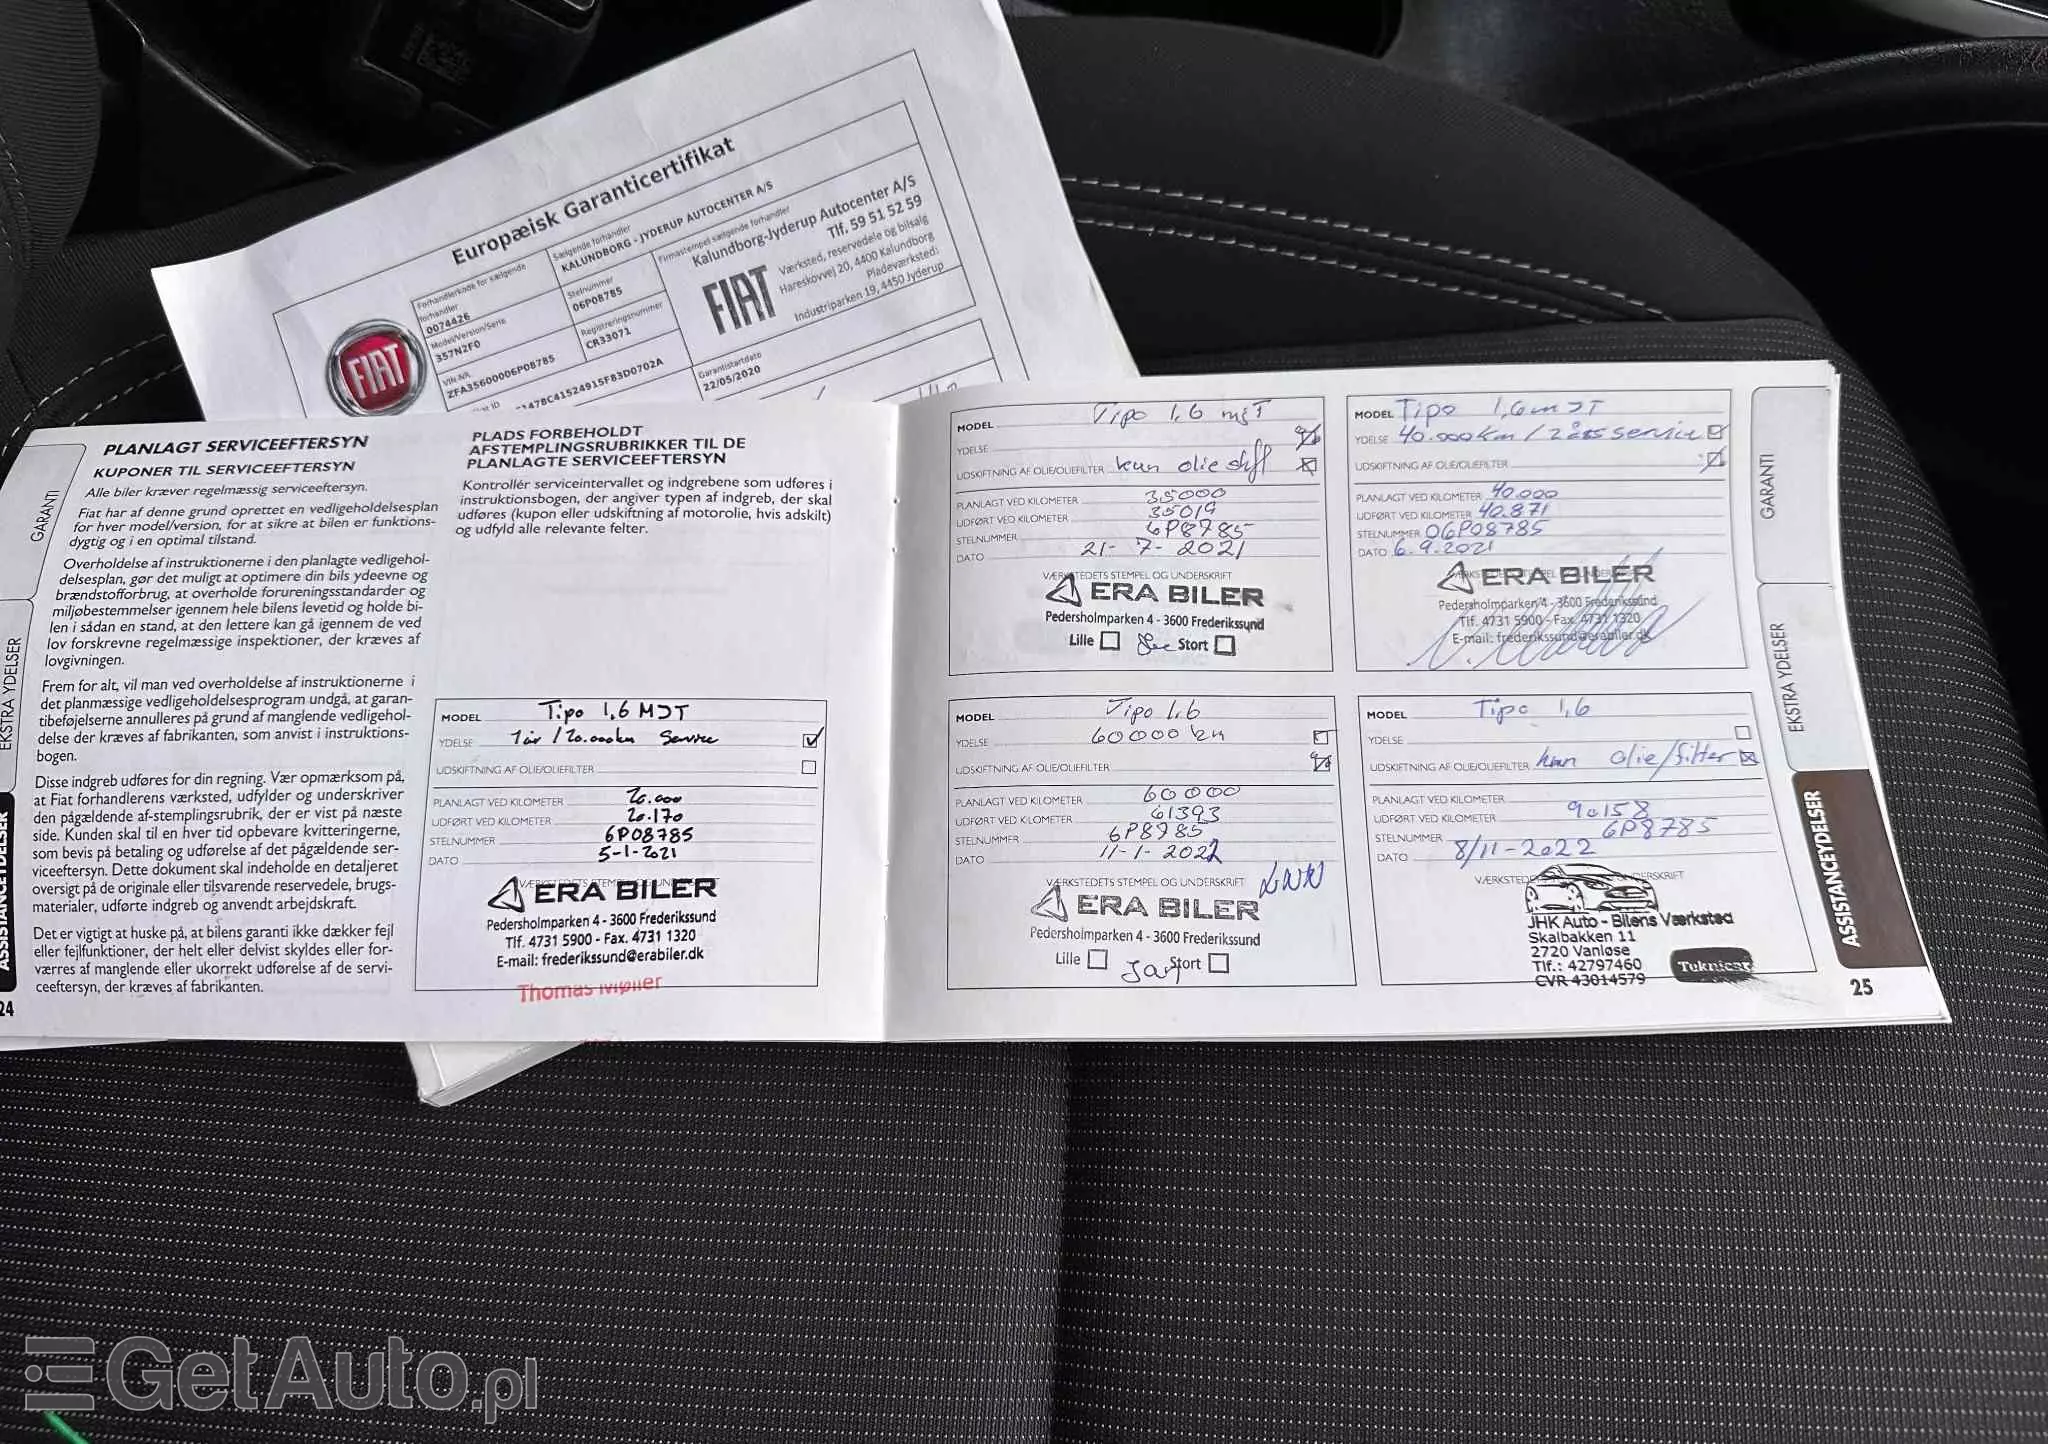 Europæisk Garanticertifikat
Forhandlerkode for sælgende
forhandler
0074426
Sælgende forhandler
KALUNDBORG - JYDERUP AUTOCENTER A/S
Model/Version/Serie
357N2F0
Stelnummer
06P08785
Firmastempel sælgende forhandler
Kalundborg-Jyderup Autocenter A/S
Tlf. 59 51 52 59
FIAT
Værksted, reservedele og bilsalg
Hareskovvej 20, 4400 Kalundborg
Pladeværksted:
Industriparken 19, 4450 Jyderup
FIAT
VIN-NR.
ZFA35600006P08785
Registreringsnummer
CR33071
Garantistartdato
22/05/2020
GARANTI
EKSTRA YDELSER
ASSISTANCEYDELSER
24
PLANLAGT SERVICEEFTERSYN
KUPONER TIL SERVICEEFTERSYN
Alle biler kræver regelmæssig serviceeftersyn.
Fiat har af denne grund oprettet en vedligeholdelsesplan
for hver model/version, for at sikre at bilen er funktions-
dygtig og i en optimal tilstand.
Overholdelse af instruktionerne i den planlagte vedligehol-
delsesplan, gør det muligt at optimere din bils ydeevne og
brændstofforbrug, at overholde forureningsstandarder og
miljøbestemmelser igennem hele bilens levetid og holde bi-
len i sådan en stand, at den lettere kan gå igennem de ved
lov forskrevne regelmæssige inspektioner, der kræves af
lovgivningen.
Frem for alt, vil man ved overholdelse af instruktionerne i
det planmæssige vedligeholdelsesprogram undgå, at garan-
tibeføjelserne annulleres på grund af manglende vedligehol-
delse der kræves af fabrikanten, som anvist i instruktions-
bogen.
Disse indgreb udføres for din regning. Vær opmærksom på,
at Fiat forhandlerens værksted, udfylder og underskriver
den pågældende af-stemplingsrubrik, der er vist på næste
side. Kunden skal til en hver tid opbevare kvitteringerne,
som bevis på betaling og udførelse af det pågældende ser-
viceeftersyn. Dette dokument skal indeholde en detaljeret
oversigt på de originale eller tilsvarende reservedele, brugs-
materialer, udførte indgreb og anvendt arbejdskraft.
Det er vigtigt at huske på, at bilens garanti ikke dækker fejl
eller fejlfunktioner, der helt eller delvist skyldes eller for-
værres af manglende eller ukorrekt udførelse af de servi-
ceeftersyn, der kræves af fabrikanten.
PLADS FORBEHOLDT
AFSTEMPLINGSRUBRIKKER TIL DE
PLANLAGTE SERVICEEFTERSYN
Kontrollér serviceintervallet og indgrebene som udføres i
instruktionsbogen, der angiver typen af indgreb, der skal
udføres (kupon eller udskiftning af motorolie, hvis adskilt)
og udfyld alle relevante felter.
MODEL Tipo 1,6 MJT
YDELSE 1 år / 20.000km Service
UDSKIFTNING AF OLIE/OLIEFILTER
PLANLAGT VED KILOMETER 20.000
UDFØRT VED KILOMETER 20.170
STELNUMMER 6P08785
DATO 5-1-2021
ERA BILER
Pedersholmparken 4 - 3600 Frederikssund
Tlf. 4731 5900 - Fax. 4731 1320
E-mail: frederikssund@erabiler.dk
Thomas Møller
MODEL Tipo 1,6 mjT
YDELSE
UDSKIFTNING AF OLIE/OLIEFILTER kun olie
PLANLAGT VED KILOMETER 35000
UDFØRT VED KILOMETER 35019
STELNUMMER 6P8785
DATO 21-7-2021
VÆRKSTEDETS STEMPEL OG UNDERSKRIFT
ERA BILER
Pedersholmparken 4 - 3600 Frederikssund
Lille Stort
MODEL Tipo 1,6 MJT
YDELSE 40.000km / 2 års service
UDSKIFTNING AF OLIE/OLIEFILTER
PLANLAGT VED KILOMETER 40.000
UDFØRT VED KILOMETER 40.871
STELNUMMER 06P08785
DATO 6.9.2021
ERA BILER
Pedersholmparken 4 - 3600 Frederikssund
Tlf. 4731 5900 - Fax. 4731 1320
E-mail: frederikssund@erabiler.dk
MODEL Tipo 1,6
YDELSE 60000 km
UDSKIFTNING AF OLIE/OLIEFILTER
PLANLAGT VED KILOMETER 60000
UDFØRT VED KILOMETER 61393
STELNUMMER 6P8785
DATO 11-1-2022
VÆRKSTEDETS STEMPEL OG UNDERSKRIFT
ERA BILER
Pedersholmparken 4 - 3600 Frederikssund
Lille Stort
MODEL Tipo 1,6
YDELSE
UDSKIFTNING AF OLIE/OLIEFILTER kun olie/filter
PLANLAGT VED KILOMETER
UDFØRT VED KILOMETER 90158
STELNUMMER 6P8785
DATO 8/11-2022
JHK Auto - Bilens Værksted
Skalbakken 11
2720 Vanløse
Tlf.: 42797460
CVR 43014579
Teknicar
GARANTI
EKSTRA YDELSER
ASSISTANCEYDELSER
25
GetAuto.pl